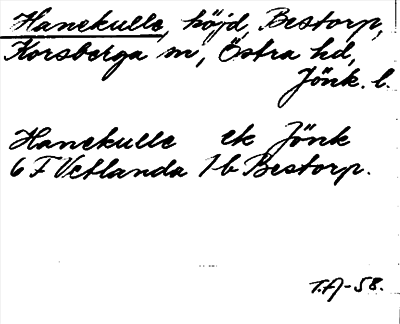 Hanekulle, höjd, Bestorp,
Korsberga sn, Östra hd,
Jönk. l.
Hanekulle ek Jönk
6 F Vetlanda 1b Bestorp.
T.A-58.